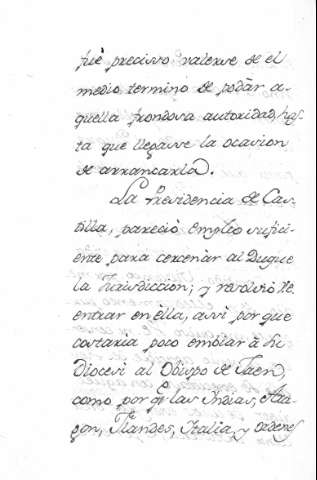 fuè precisso valerse de el
medio termino de podàr a-
quella frondosa autoridad, has-
ta que llegasse la ocasion
de arrancarla.
La Presidencia de Cas-
tilla, pareciò Empleo sufici-
ente para cercenar al Duque
la Jurisdiccion; y resolviò de
entrar en ella, assi por que
costaria poco embiar à su
Diocesi al Obispo de Jaen,
como por q̃ las Indias, Ara-
gon, Flandes, Italia, y Ordenes